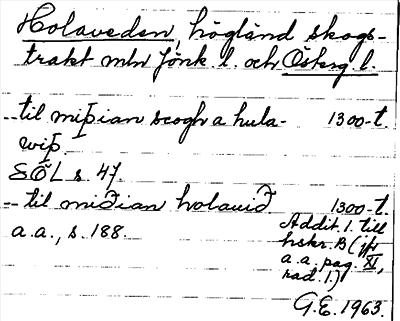 Holaveden, högländ skogs-
trakt mln Jönk. l. och Österg. l.
-- til miþian scogh a hula- 1300-t.
wiþ
SÖL s. 47.
-- til miðian holauið 1300-t.
a.a., s. 188. Addit. 1. till
hskr. B (jfr
a.a. pag. XI,
rad. 1.)
G.E. 1963.